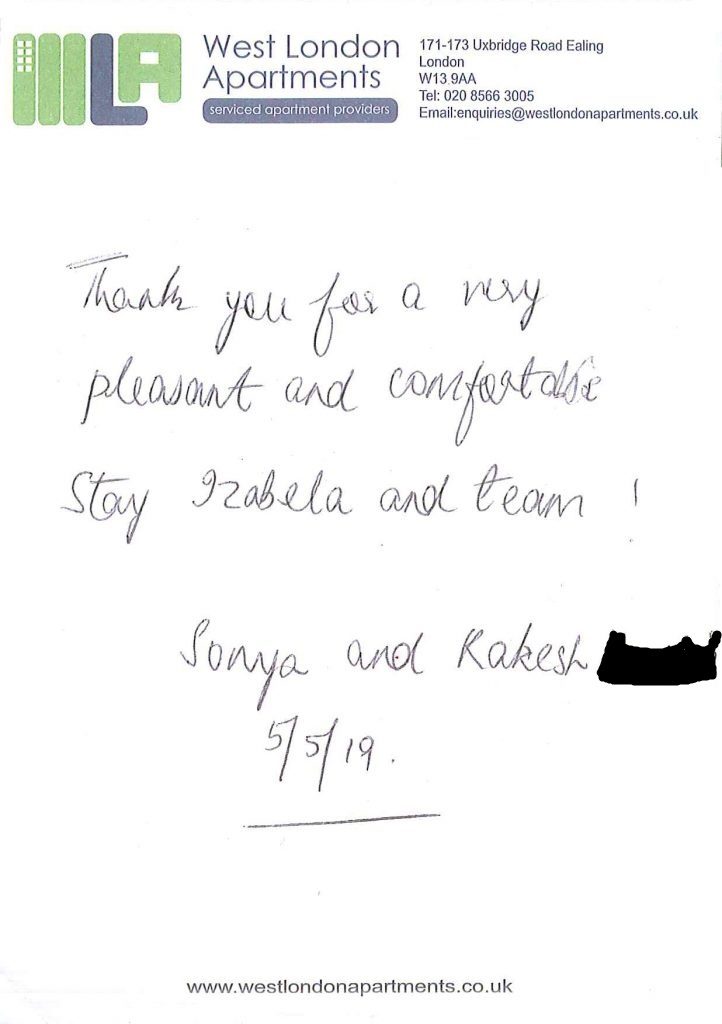 WLA
West London
Apartments
serviced apartment providers
171-173 Uxbridge Road Ealing
London
W13 9AA
Tel: 020 8566 3005
Email:enquiries@westlondonapartments.co.uk
Thank you for a very
pleasant and comfortable
Stay Izabela and team !
Sonya and Rakesh
5/5/19.
www.westlondonapartments.co.uk